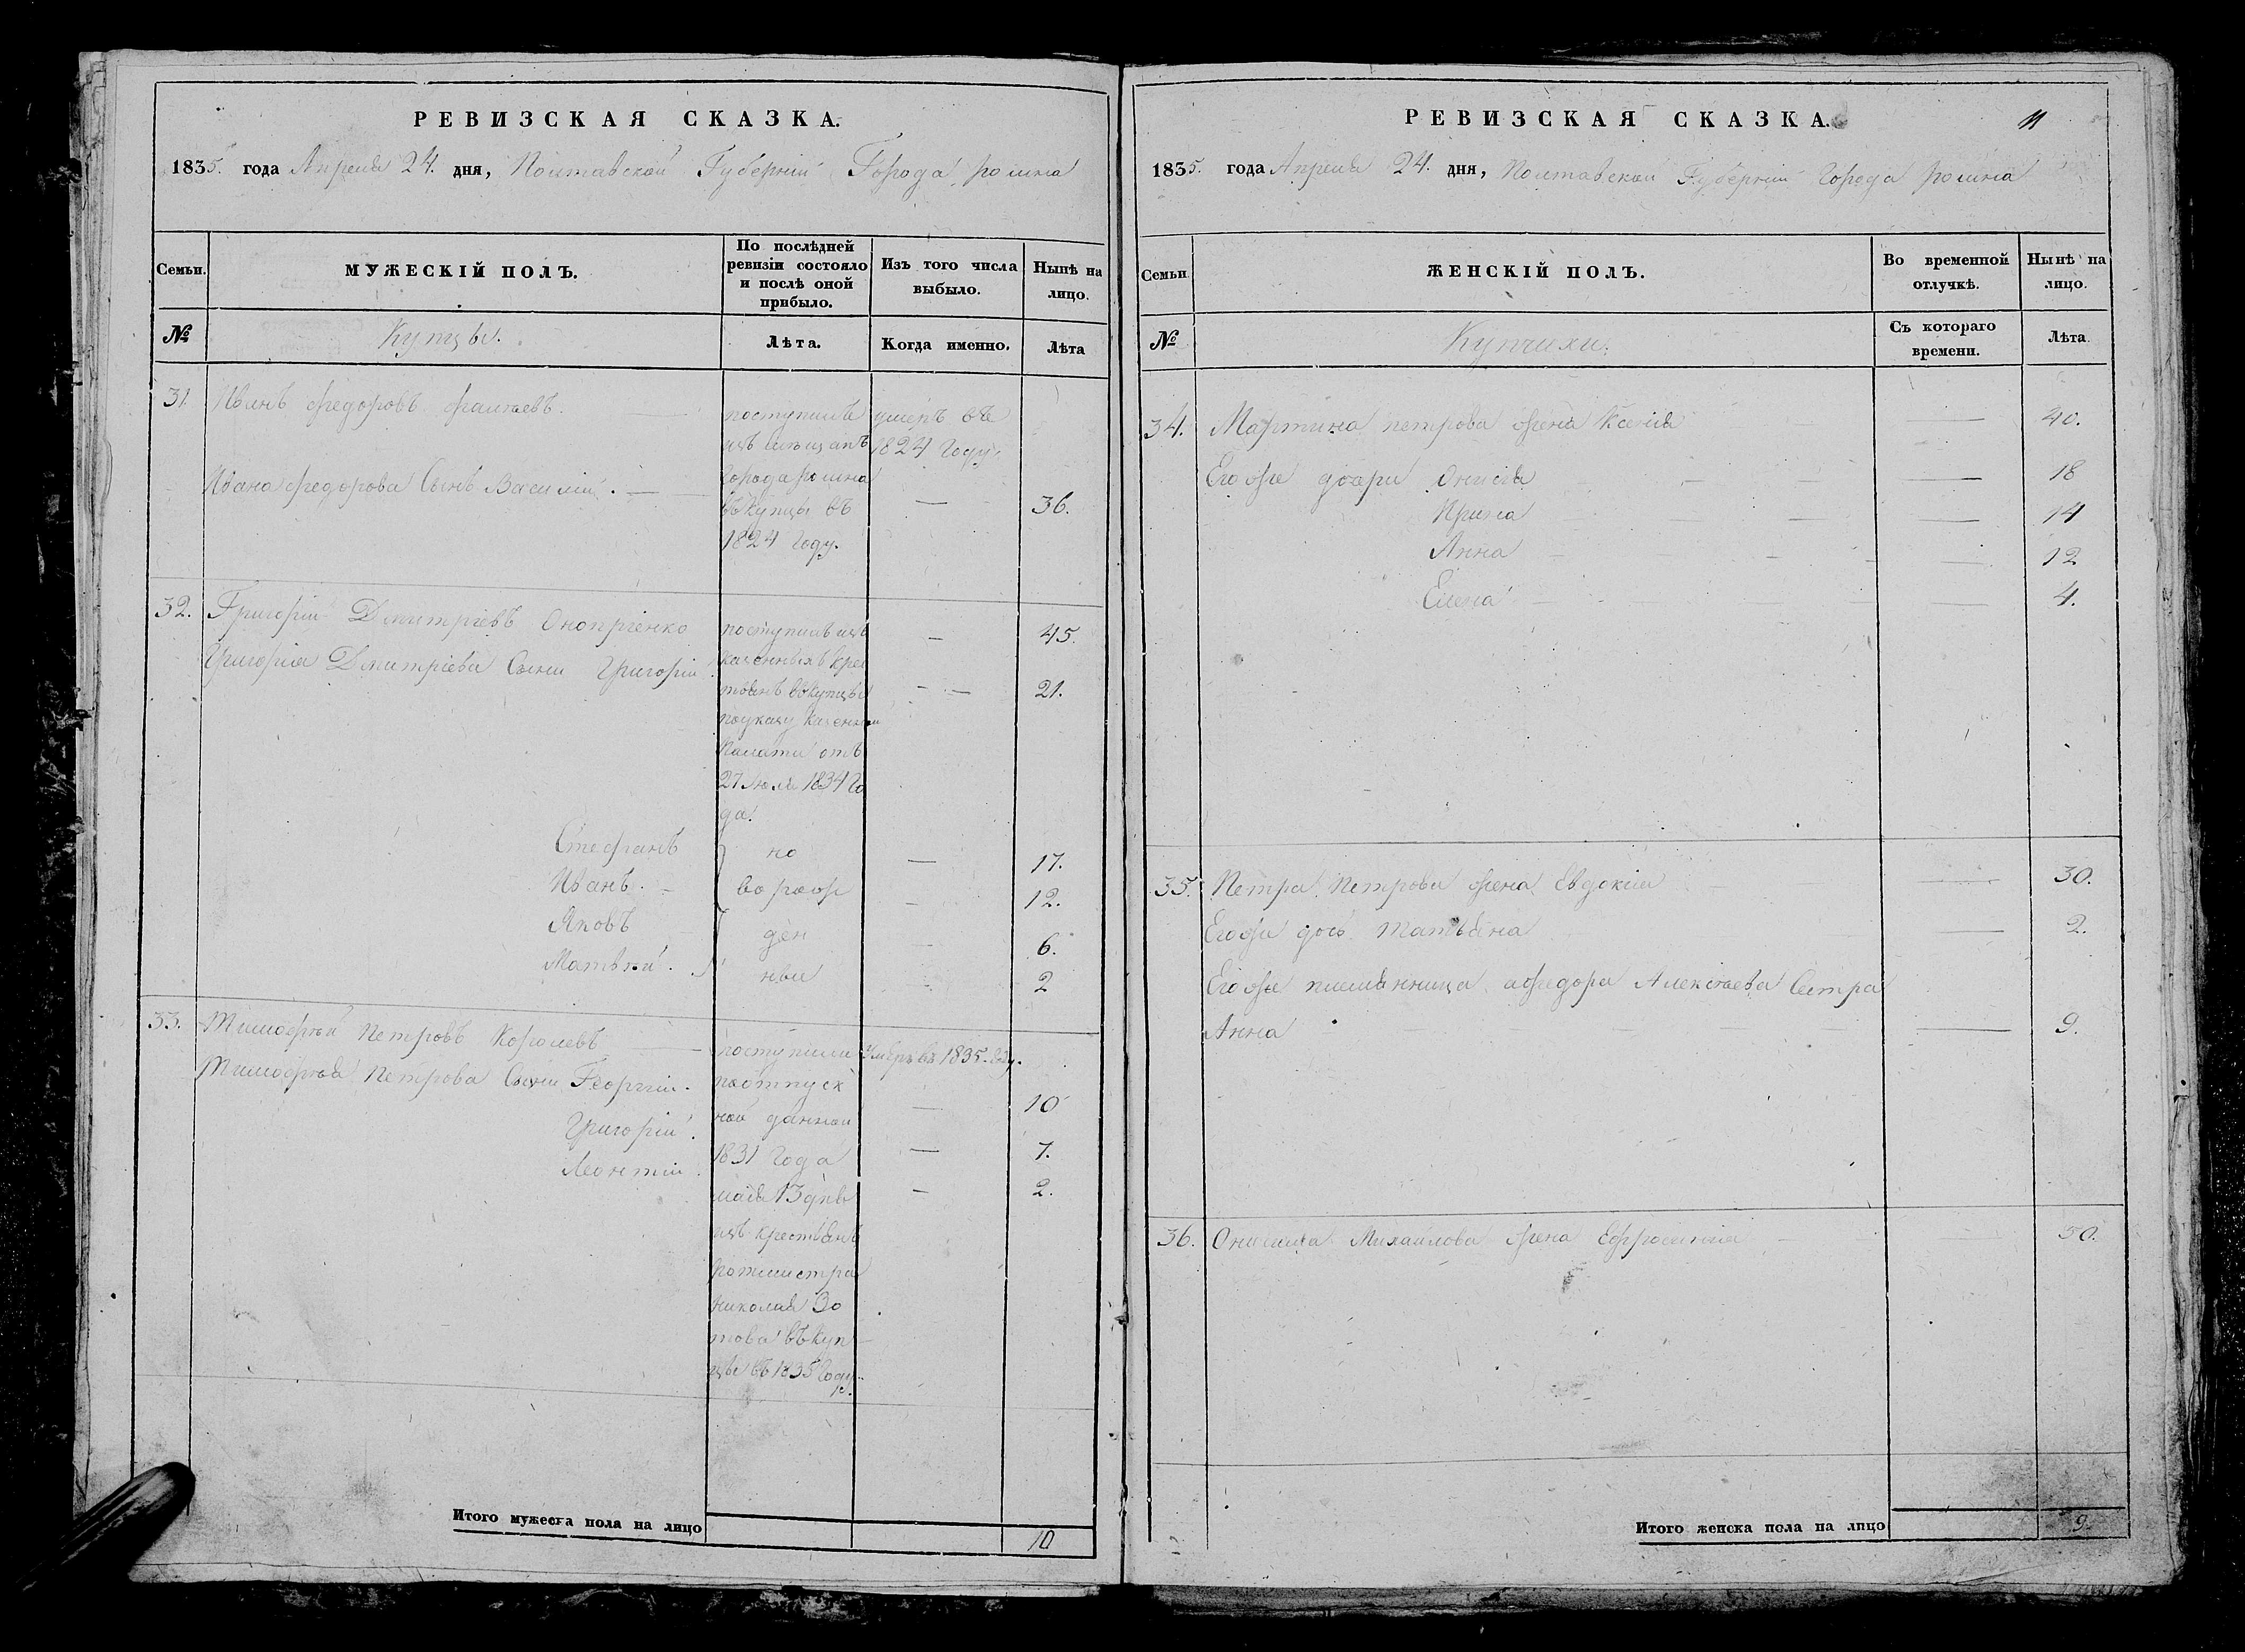 РЕВИЗСКАЯ СКАЗКА.
1835. года Апреля 24. дня, Полтавской Губерніи Города ромна
Семьи.
МУЖЕСКІЙ ПОЛЪ.
По послѣдней ревизіи состояло и послѣ оной прибыло.
Изъ того числа выбыло.
Нынѣ на лицо.
№
Купцы.
Лѣта.
Когда именно.
Лѣта
31. Иванъ Федоровъ
поступилъ изъ мѣщанъ города ромна въ купцы въ 1824 году.
умеръ въ 1824 году.
Ивана Федорова Сынъ Василій. — 36.
32. Григорій Дмитріевъ Онопріенко
поступилъ изъ казенныхъ крестьянъ въ купцы по указу казенной палаты отъ 27 Июля 1834 года.
— 45.
Григорія Дмитріева Сыни Григорій — — 21.
Стефанъ — 17.
Иванъ. — 12.
Яковъ 6.
Матвѣй. 2
но
ворож
ден
ныи
33. Тимофѣй Петровъ Королевъ
поступили по отпускной данной 1831 года мая 13 дня изъ крестьянъ ротмистра Николая Зотова въ купцы въ 1835 году.
Умеръ въ 1835. году.
Тимофѣя Петрова Сыни Георгій. — 10
Григорій. — 7.
Леонтій. — 2.
Итого мужеска пола на лицо 10
РЕВИЗСКАЯ СКАЗКА.
11
1835. года Апреля 24. дня, Полтавской Губерніи Города ромна
Семьи
ЖЕНСКІЙ ПОЛЪ.
Во временной отлучкѣ.
Нынѣ на лицо.
№
Купчихи.
Съ котораго времени.
Лѣта.
34. Мартина петрова жена Ксенія — 40.
Его же дочери Онисія — 18
Ирина — 14
Анна — 12
Елена — 4.
35. Петра Петрова жена Евдокія — 30.
Его же дочь Татьяна — 2.
Его же племянница афедора Алексѣева Сестра
Анна — 9.
36. Михаилова жена Ефросинія 50.
Итого женска пола на лицо 9.